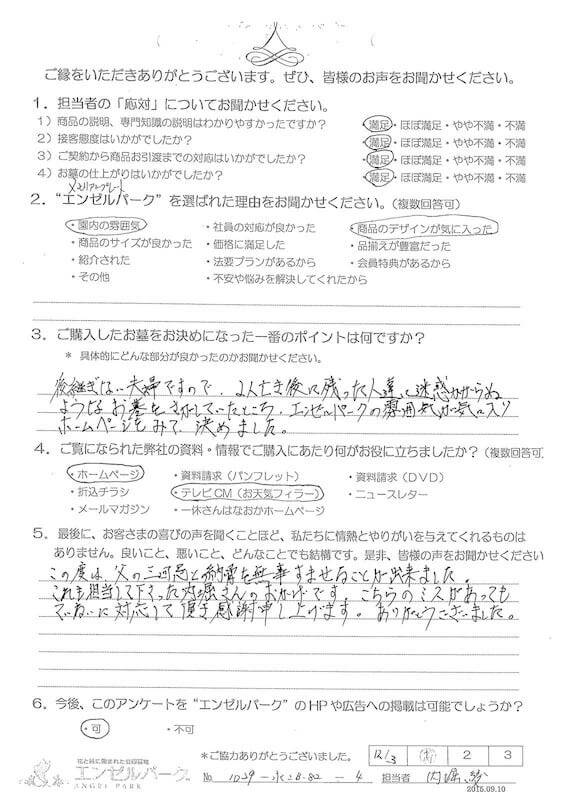 ご縁をいただきありがとうございます。ぜひ、皆様のお声をお聞かせください。
1．担当者の「応対」についてお聞かせください。
1）商品の説明、専門知識の説明はわかりやすかったですか？ 満足・ほぼ満足・やや不満・不満
2）接客態度はいかがでしたか？ 満足・ほぼ満足・やや不満・不満
3）ご契約から商品お引渡までの対応はいかがでしたか？ 満足・ほぼ満足・やや不満・不満
4）お墓の仕上がりはいかがでしたか？ 満足・ほぼ満足・やや不満・不満
メモリアルプレート
2．“エンゼルパーク”を選ばれた理由をお聞かせください。（複数回答可）
・園内の雰囲気 ・社員の対応が良かった ・商品のデザインが気に入った
・商品のサイズが良かった ・価格に満足した ・品揃えが豊富だった
・紹介された ・法要プランがあるから ・会員特典があるから
・その他 ・不安や悩みを解決してくれたから
3．ご購入したお墓をお決めになった一番のポイントは何ですか？
＊ 具体的にどんな部分が良かったのかお聞かせください。
後継ぎない夫婦ですので、2人亡き後に残った人達に迷惑かからぬ
ようなお墓をさがしていたところ、エンゼルパークの雰囲気が気に入り
ホームページをみて、決めました。
4．ご覧になられた弊社の資料・情報でご購入にあたり何がお役に立ちましたか？（複数回答可）
・ホームページ ・資料請求（パンフレット） ・資料請求（DVD）
・折込チラシ ・テレビCM（お天気フィラー） ・ニュースレター
・メールマガジン ・一休さんはなおかホームページ
5．最後に、お客さまの喜びの声を聞くことほど、私たちに情熱とやりがいを与えてくれるものは
ありません。良いこと、悪いこと、どんなことでも結構です。是非、皆様の声をお聞かせください
この度は、父の三回忌と納骨を無事すませることが出来ました。
これも担当して下さった内堀さんのおかげです。こちらのミスがあっても
ていねいに対応して頂き感謝申し上げます。ありがとうございました。
6．今後、このアンケートを“エンゼルパーク”のHPや広告への掲載は可能でしょうか？
・可 ・不可
＊ご協力ありがとうございました。 12/3 2 3
花と緑に囲まれた公園墓地
エンゼルパーク
ANGEL PARK
No 1029 - 水2B-82 - 4 担当者 内堀
2015.09.10